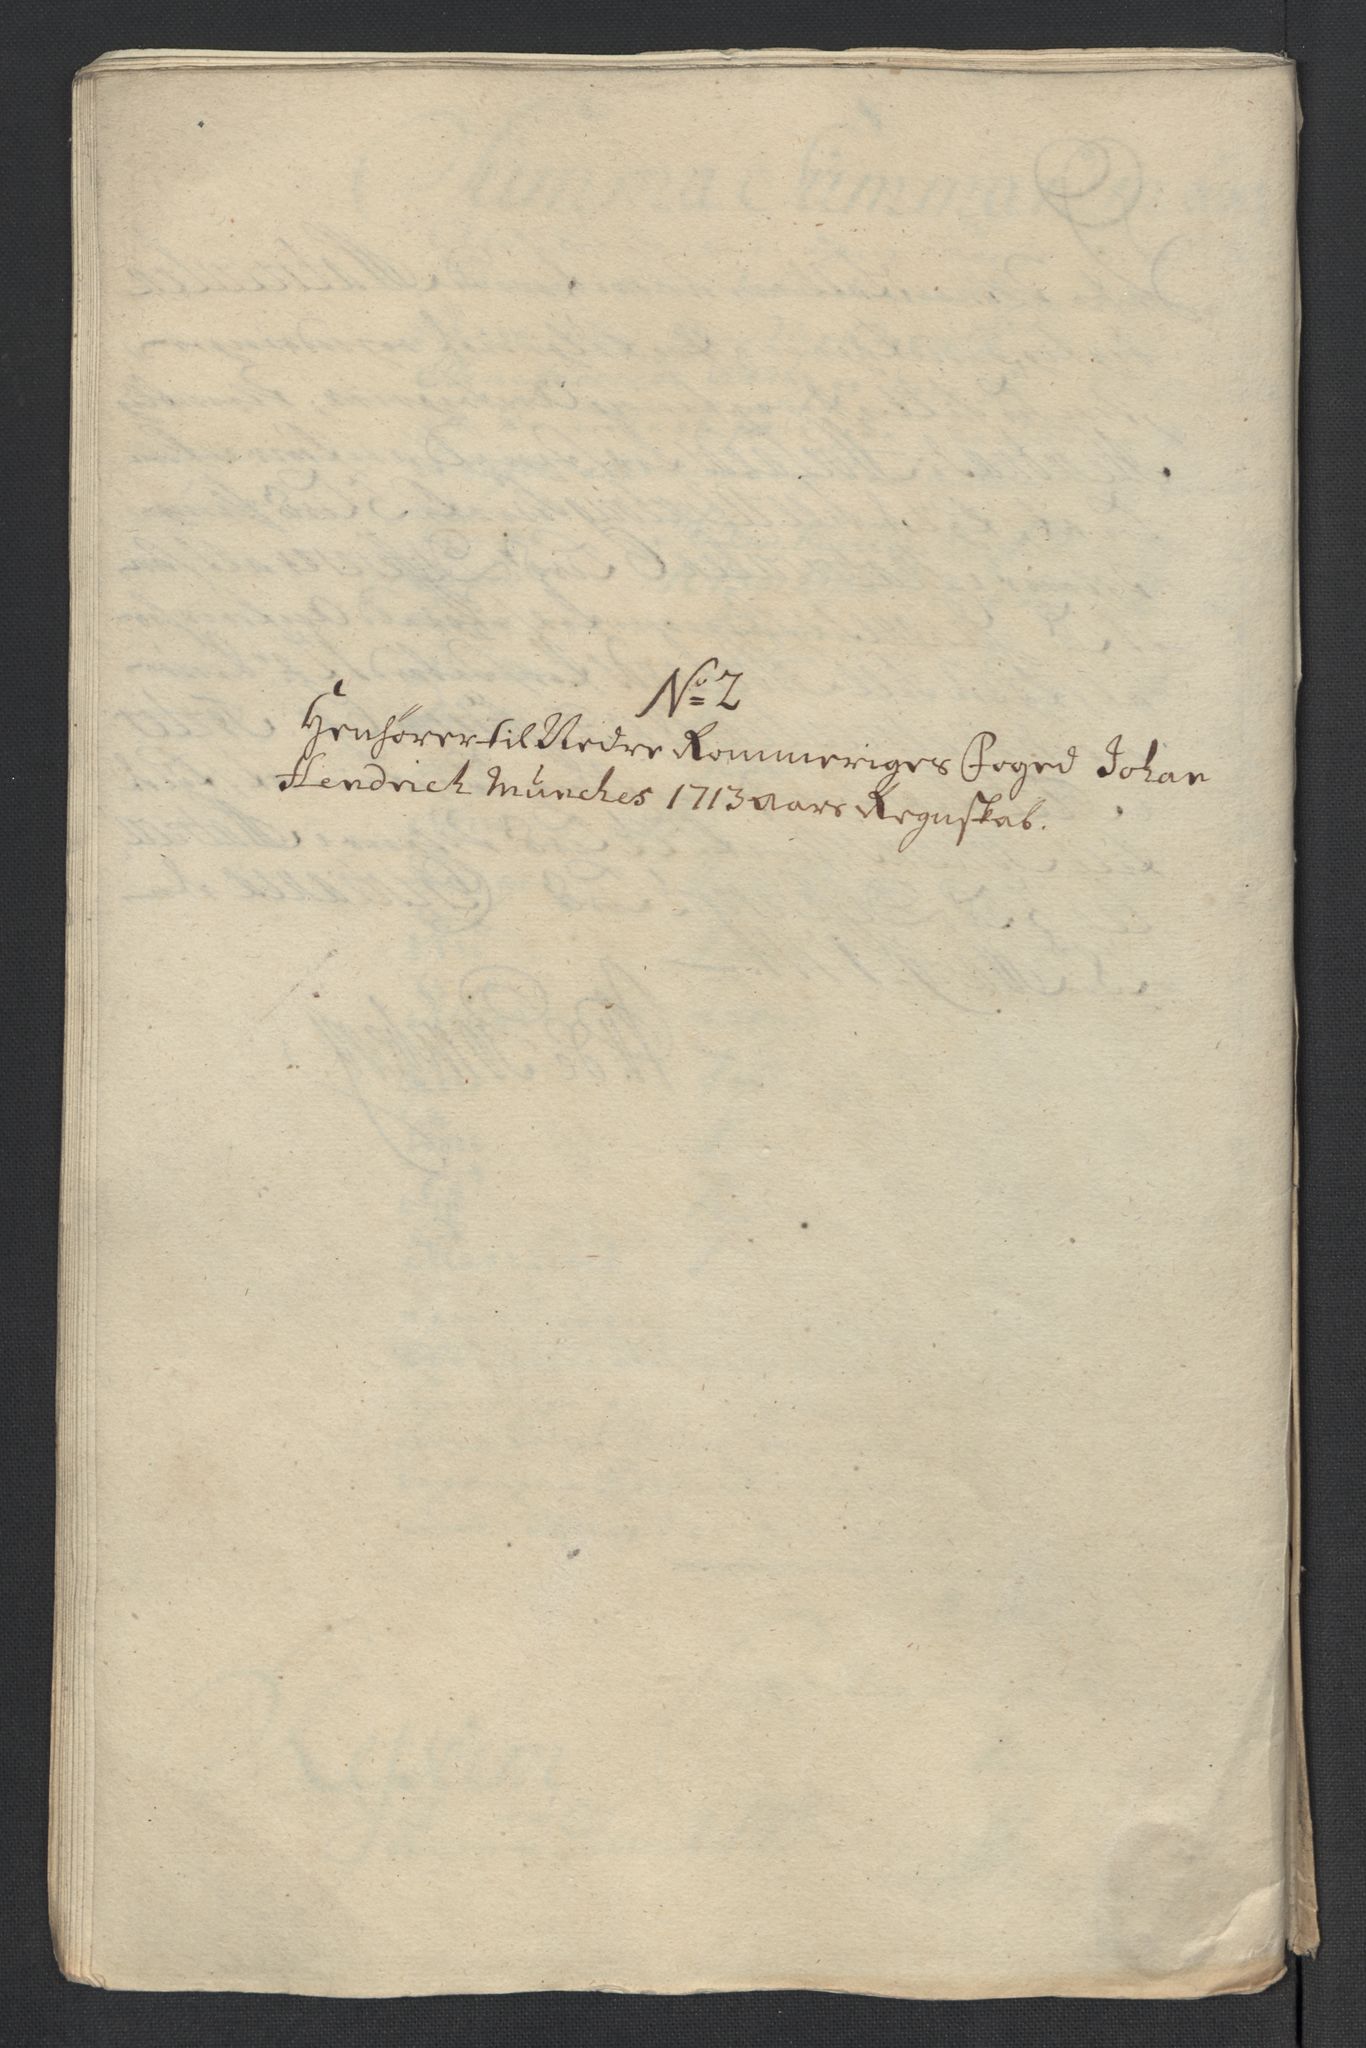 No 2
Henhører til Nedre Rommeriges Foged Johan
Hendrich Münches 1713 aars Regnskab.